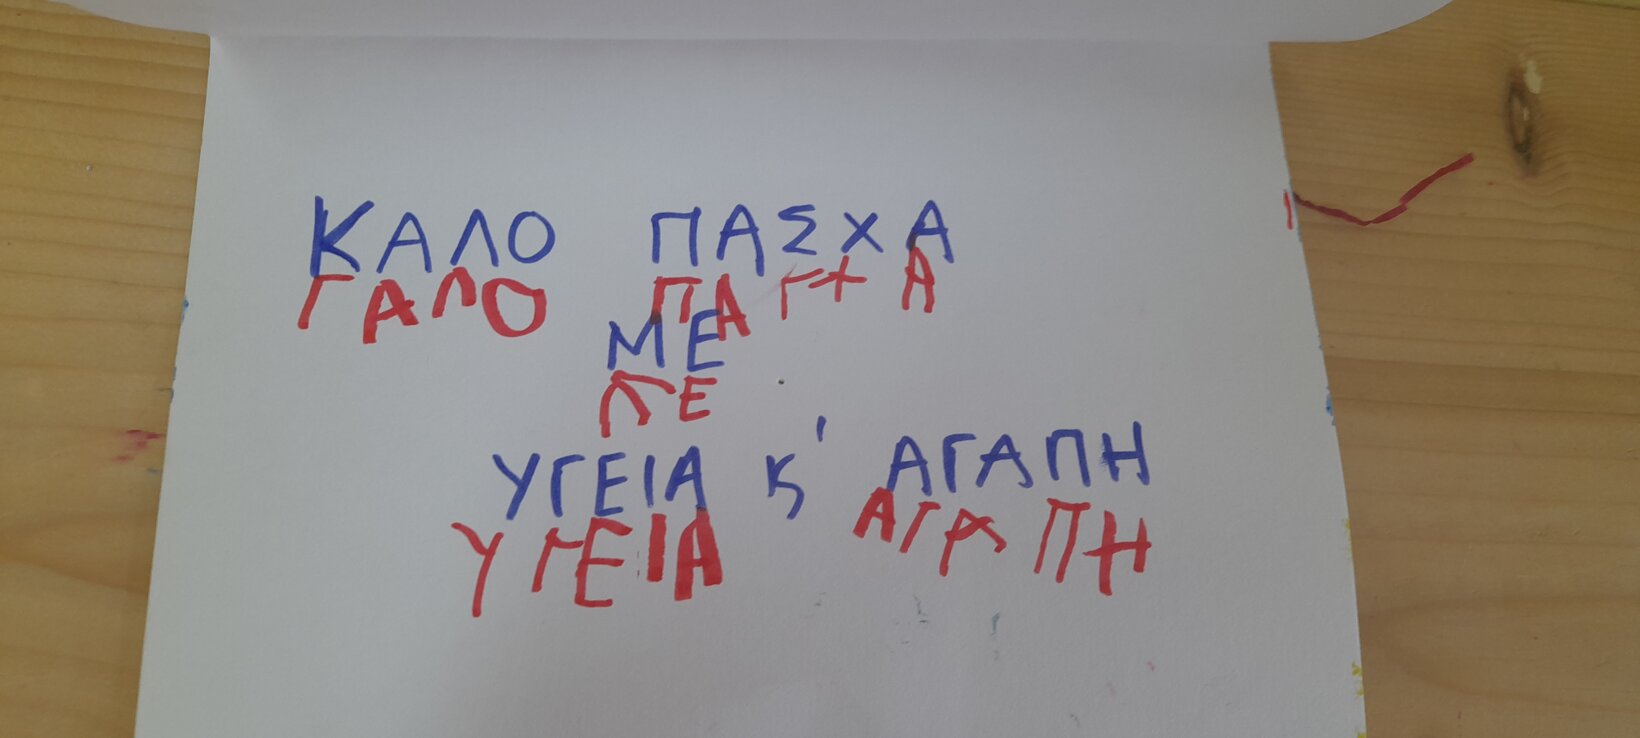 ΚΑΛΟ ΠΑΣΧΑ
ΓΑΛΟ ΠΑΓΧΑ
ΜΕ
ΠΕ
ΥΓΕΙΑ Κ' ΑΓΑΠΗ
ΥΓΕΙΑ ΑΓΑΠΗ